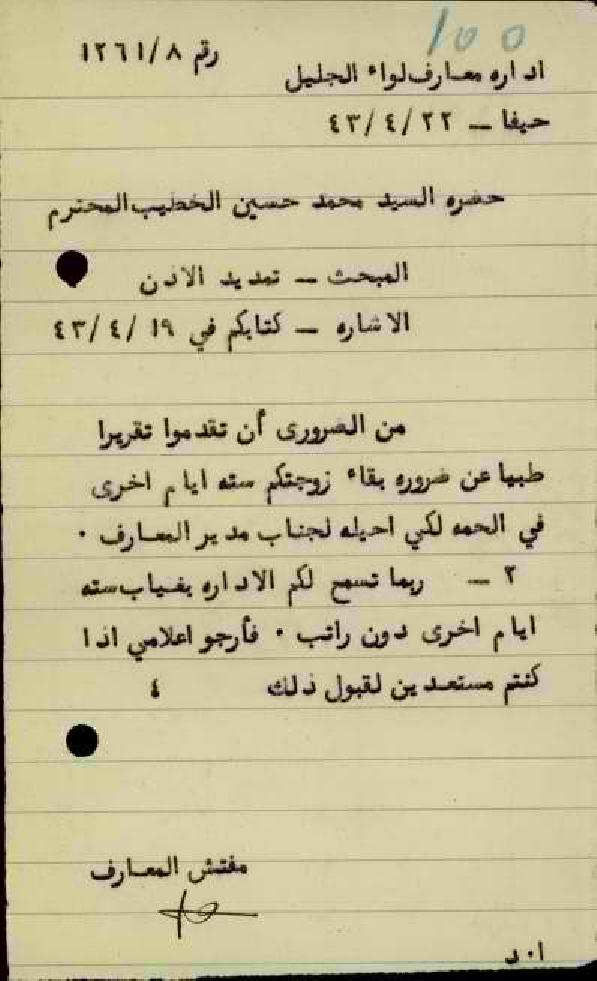 100
رقم ١٢٦١/٨
اداره معارف لواء الجليل
حيفا – ٤٣/٤/٢٢
حضره السيد محمد حسين الخطيب المحترم
المبحث – تمديد الاذن
الاشاره – كتابكم في ٤٣/٤/١٩
من الضرورى أن تقدموا تقريرا
طبيا عن ضروره بقاء زوجتكم سته ايام اخرى
في الحمه لكي احيله لجناب مدير المعارف ٠
٢ – ربما تسمح لكم الاداره بغياب سته
ايام اخرى دون راتب ٠ فأرجو اعلامي اذا
كنتم مستعدين لقبول ذلك ٤
مفتش المعارف
ا٠د